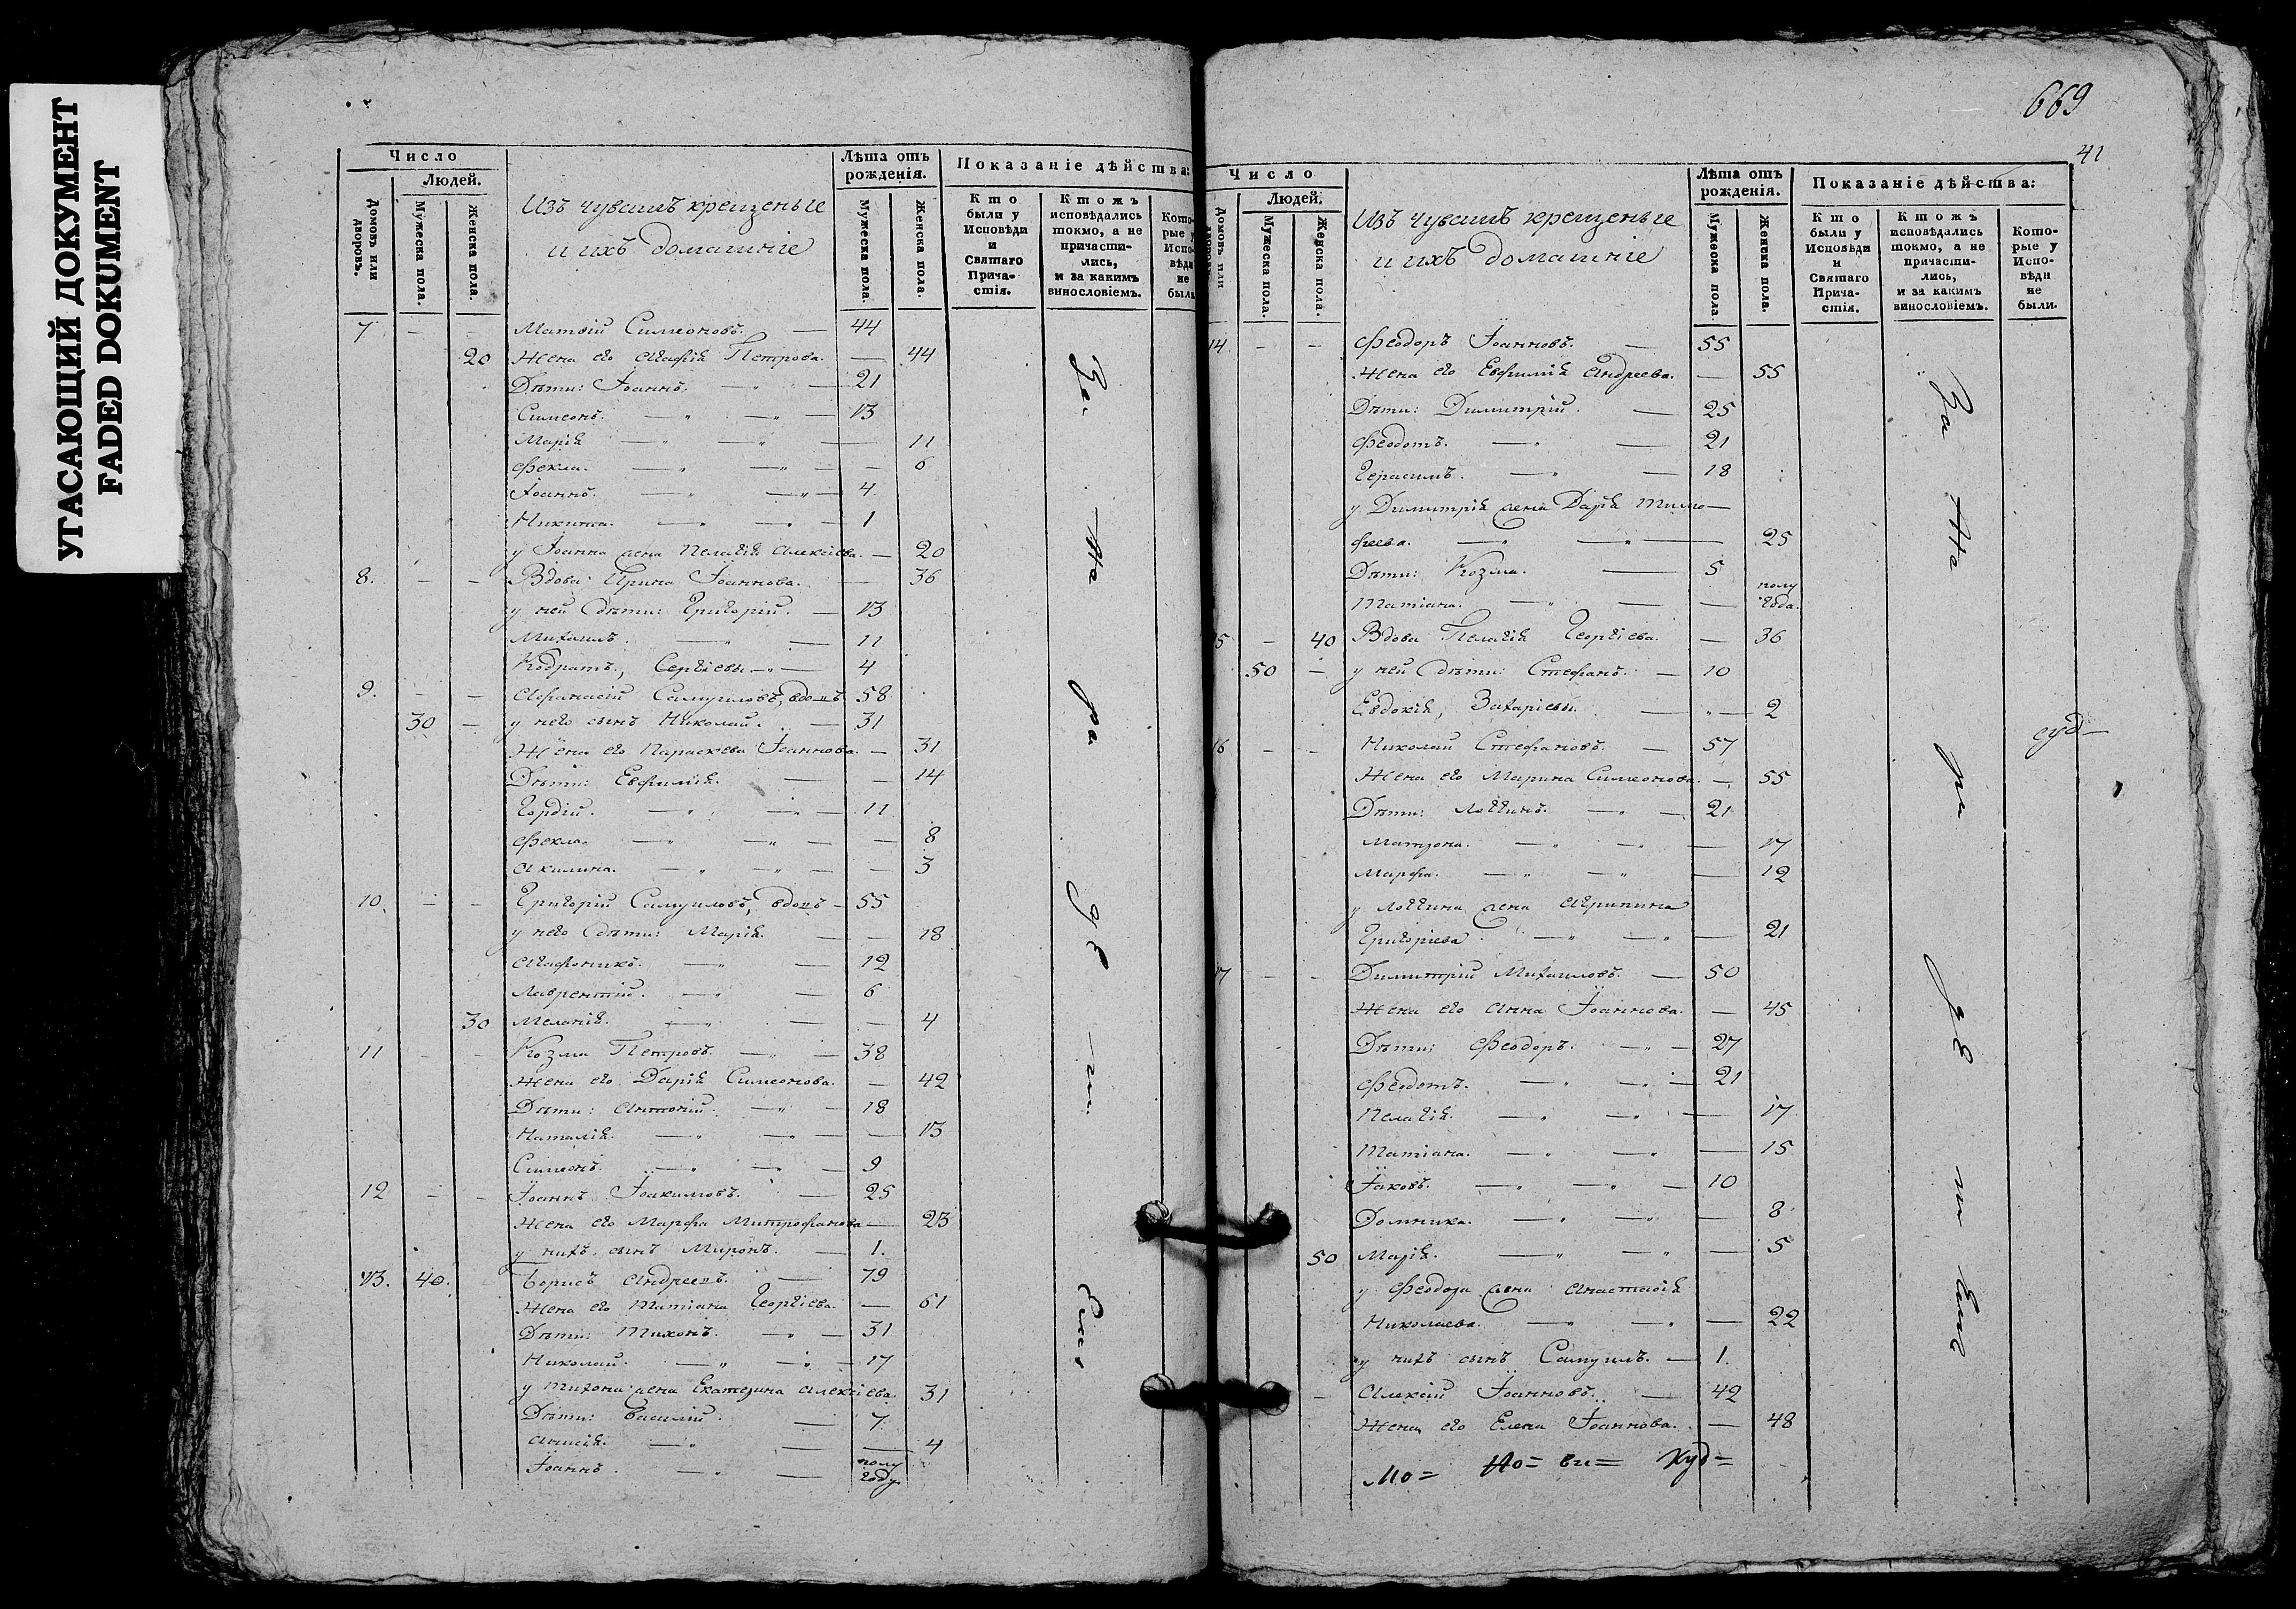 УГАСАЮЩИЙ ДОКУМЕНТ
FADED DOKUMENT
Число
Людей.
Домовъ или дворовъ.
Мужеска пола.
Женска пола.
Изъ чувашъ крещеные
и ихъ домашніе
Лѣта отъ рожденія.
Мужеска пола.
Женска пола.
Показаніе дѣйства:
Кто были у Исповѣди и Святаго Прича-стія.
Ктожъ исповѣдались токмо, а не причасти-лись, и за какимъ винословіемъ.
Кото-рые у Испо-вѣди не были
7 — — Матѳій Симеоновъ. — 44
20 Жена его Агафія Петрова. — 44
Дѣти: Іоаннъ. — 21
Симеонъ. — 13
Марія — 11
Фекла. — 6
Іоаннъ. — 4
Никита. — 1
у Іоанна жена Пелагія Алексіева. — 20
8. — — Вдова Ирина Іоаннова. — 36
у ней дѣти: Григорій. — 13
Михаилъ. — 11
Кодратъ, Сергіевы — 4
9. — — Афанасій Самуиловъ, вдовъ 58
30 — у него сынъ Николай. — 31
Жена его Параскева Іоаннова. — 31
Дѣти: Евфимія. — 14
Гордій. — 11
Фекла. — 8
Акилина. — 3
10. — — Григорій Самуиловъ, вдовъ — 55
у него дѣти: Марія. — 18
Агафоникъ. — 12
Лаврентій. — 6
30 Меланія. — 4
11 — — Козма Петровъ. — 38
Жена его Дарія Симеонова. — 42
Дѣти: Антоній. — 18
Наталія. — 13
Симеонъ. — 9
12 — — Іоаннъ Іоакимовъ. — 25
Жена его Марфа Митрофанова — 23
у нихъ сынъ Миронъ. — 1.
13. 40. Борисъ Андреевъ. — 79
Жена его Татіана Георгіева. — 61
Дѣти: Тихонъ. — 31
Николай. — 17
у Тихона жена Екатерина Алексіева. 31
Дѣти: Василій. — 7
Анисія. — 4
Іоаннъ. — полу году
За не ра де ні емъ
669
41
Число
Людей.
Домовъ или дворовъ.
Мужеска пола.
Женска пола.
Изъ чувашъ крещеные
и ихъ домашніе
Лѣта отъ рожденія.
Мужеска пола.
Женска пола.
Показаніе дѣйства:
Кто были у Исповѣди и Святаго Прича-стія.
Ктожъ исповѣдались токмо, а не причасти-лись, и за какимъ винословіемъ.
Кото-рые у Испо-вѣди не были.
14. — — Феодоръ Іоанновъ. — 55
Жена его Евфимія Андреева. — 55
Дѣти: Димитрій. — 25
Феодотъ. — 21
Герасимъ. — 18
у Димитрія жена Дарія Тимо—
феева. — 25
Дѣти: Козма. — 5
Татіана. — полу года.
15 — 40 Вдова Пелагія Георгіева. — 36
50 — у ней дѣти: Стефанъ. — 10
Евдокія, Захаріевы. — 2
16 — — Николай Стефановъ. — 57
Жена его Марина Симеонова. — 55
Дѣти: Логгинъ. — 21
Матрона. — 17
Марфа. — 12
у Логгина жена Агрипина
Григоріева — 21
17 — — Димитрій Михаиловъ. — 50
Жена его Анна Іоаннова. — 45
Дѣти: Феодоръ. — 27
Феодотъ. — 21
Пелагія. — 17
Татіана. — 15
Іаковъ. — 10
Домника. — 8
50 Марія. — 5
у Феодора жена Анастасія
Николаева. — 22
у нихъ сынъ Самуилъ. — 1.
— Алексій Іоанновъ. — 42
Жена его Елена Іоаннова. — 48
За не ра де ні емъ